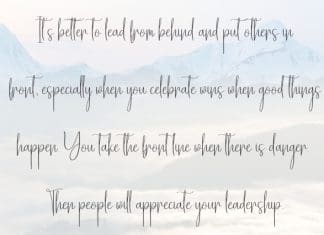 It's better to lead from behind and put others in
front, especially when you celebrate wins when good things
happen. You take the front line when there is danger.
Then people will appreciate your leadership.